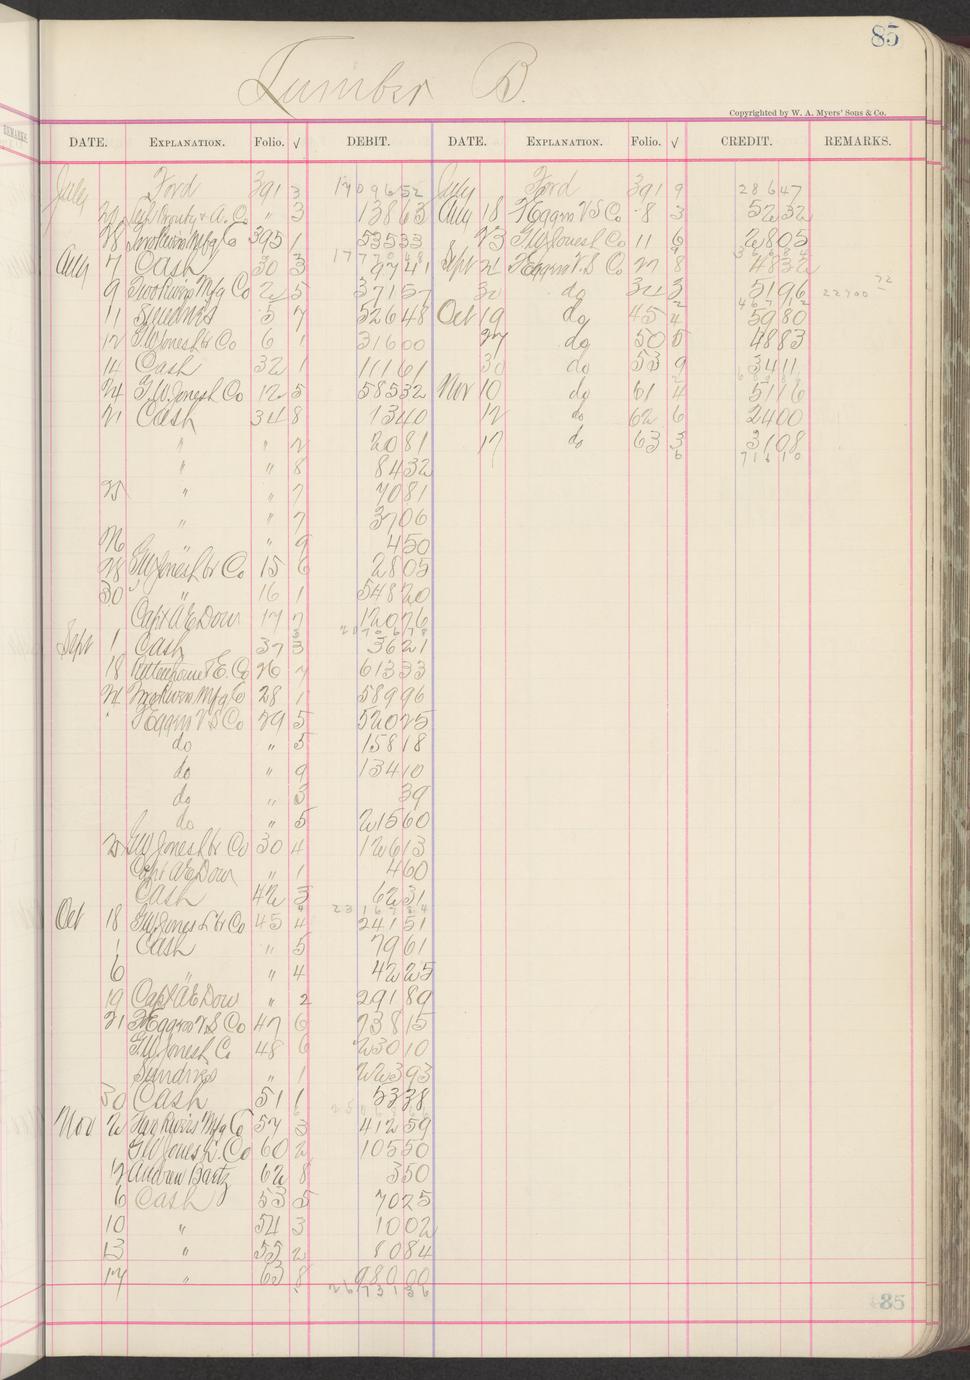 85
Lumber B.
Copyrighted by W. A. Myers' Sons & Co.
REMARKS.
DATE. EXPLANATION. Folio. √ DEBIT. DATE. EXPLANATION. Folio. √ CREDIT. REMARKS.
July Ford 391 3 1709652 July Ford 391 9 28647
" 3 13863 Aug 18 F Eggers V S Co 8 3 5232
28 Two Rivers Mfg Co 395 1 53533 23 G W Jones L Co 11 6 2805
Aug 7 Cash 30 3 9741 Sept 21 F Eggers V. S Co 27 8 4832
9 Two Rivers Mfg Co 2 5 37157 30 do 34 3 5196 22700
11 Sundries 5 7 52648 Oct 19 do 45 4 5980
12 G W Jones Lbr Co 6 1 31600 27 do 50 5 4883
14 Cash 32 1 11161 30 do 53 9 3411
24 G. W. Jones L Co 12 5 58532 Nov 10 do 61 4 5116
21 Cash 34 8 1340 12 do 62 6 2400
" " 2 2081 17 do 63 3 3108
" " 8 8432 71610
25 " " 7 7081
" " 7 3706
26 " " 9 450
28 G W Jones Lbr Co 15 6 2805
30 " 16 1 54820
Capt A E Dow 17 7 12076
Sept 1 Cash 37 3 3621
18 26 7 61333
24 Two Rivers Mfg Co 28 1 58996
" F Eggers V S Co 29 5 52025
do " 5 15818
do " 9 13410
do " 3 39
do " 5 21560
25 G W Jones Lbr Co 30 4 12613
Capt A E Dow " 1 460
Cash 42 3 6231
Oct 18 G W Jones Lbr Co 45 4 24151
1 Cash " 5 7961
6 " " 4 4225
19 Capt A E Dow " 2 29189
21 F Eggers V. S Co 47 6 73815
G W Jones L Co 48 6 23010
Sundries " 1 22393
30 Cash 51 1 5338
Nov 2 Two Rivers Mfg Co 57 3 41259
G W Jones L. Co 60 2 10550
12 Andrew Bartz 62 8 350
6 Cash 53 5 7025
10 " 54 3 1002
13 " 55 2 8084
17 " 63 8 98000
2673136
85